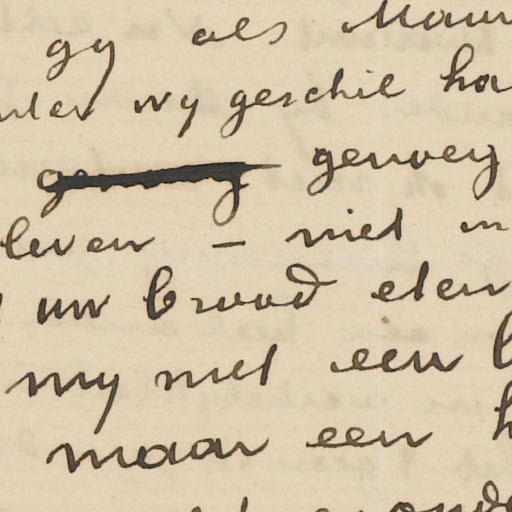 gy als Mau
wy geschil ha
genoeg
leven – niet in
uw brood eten
my met een
maar een